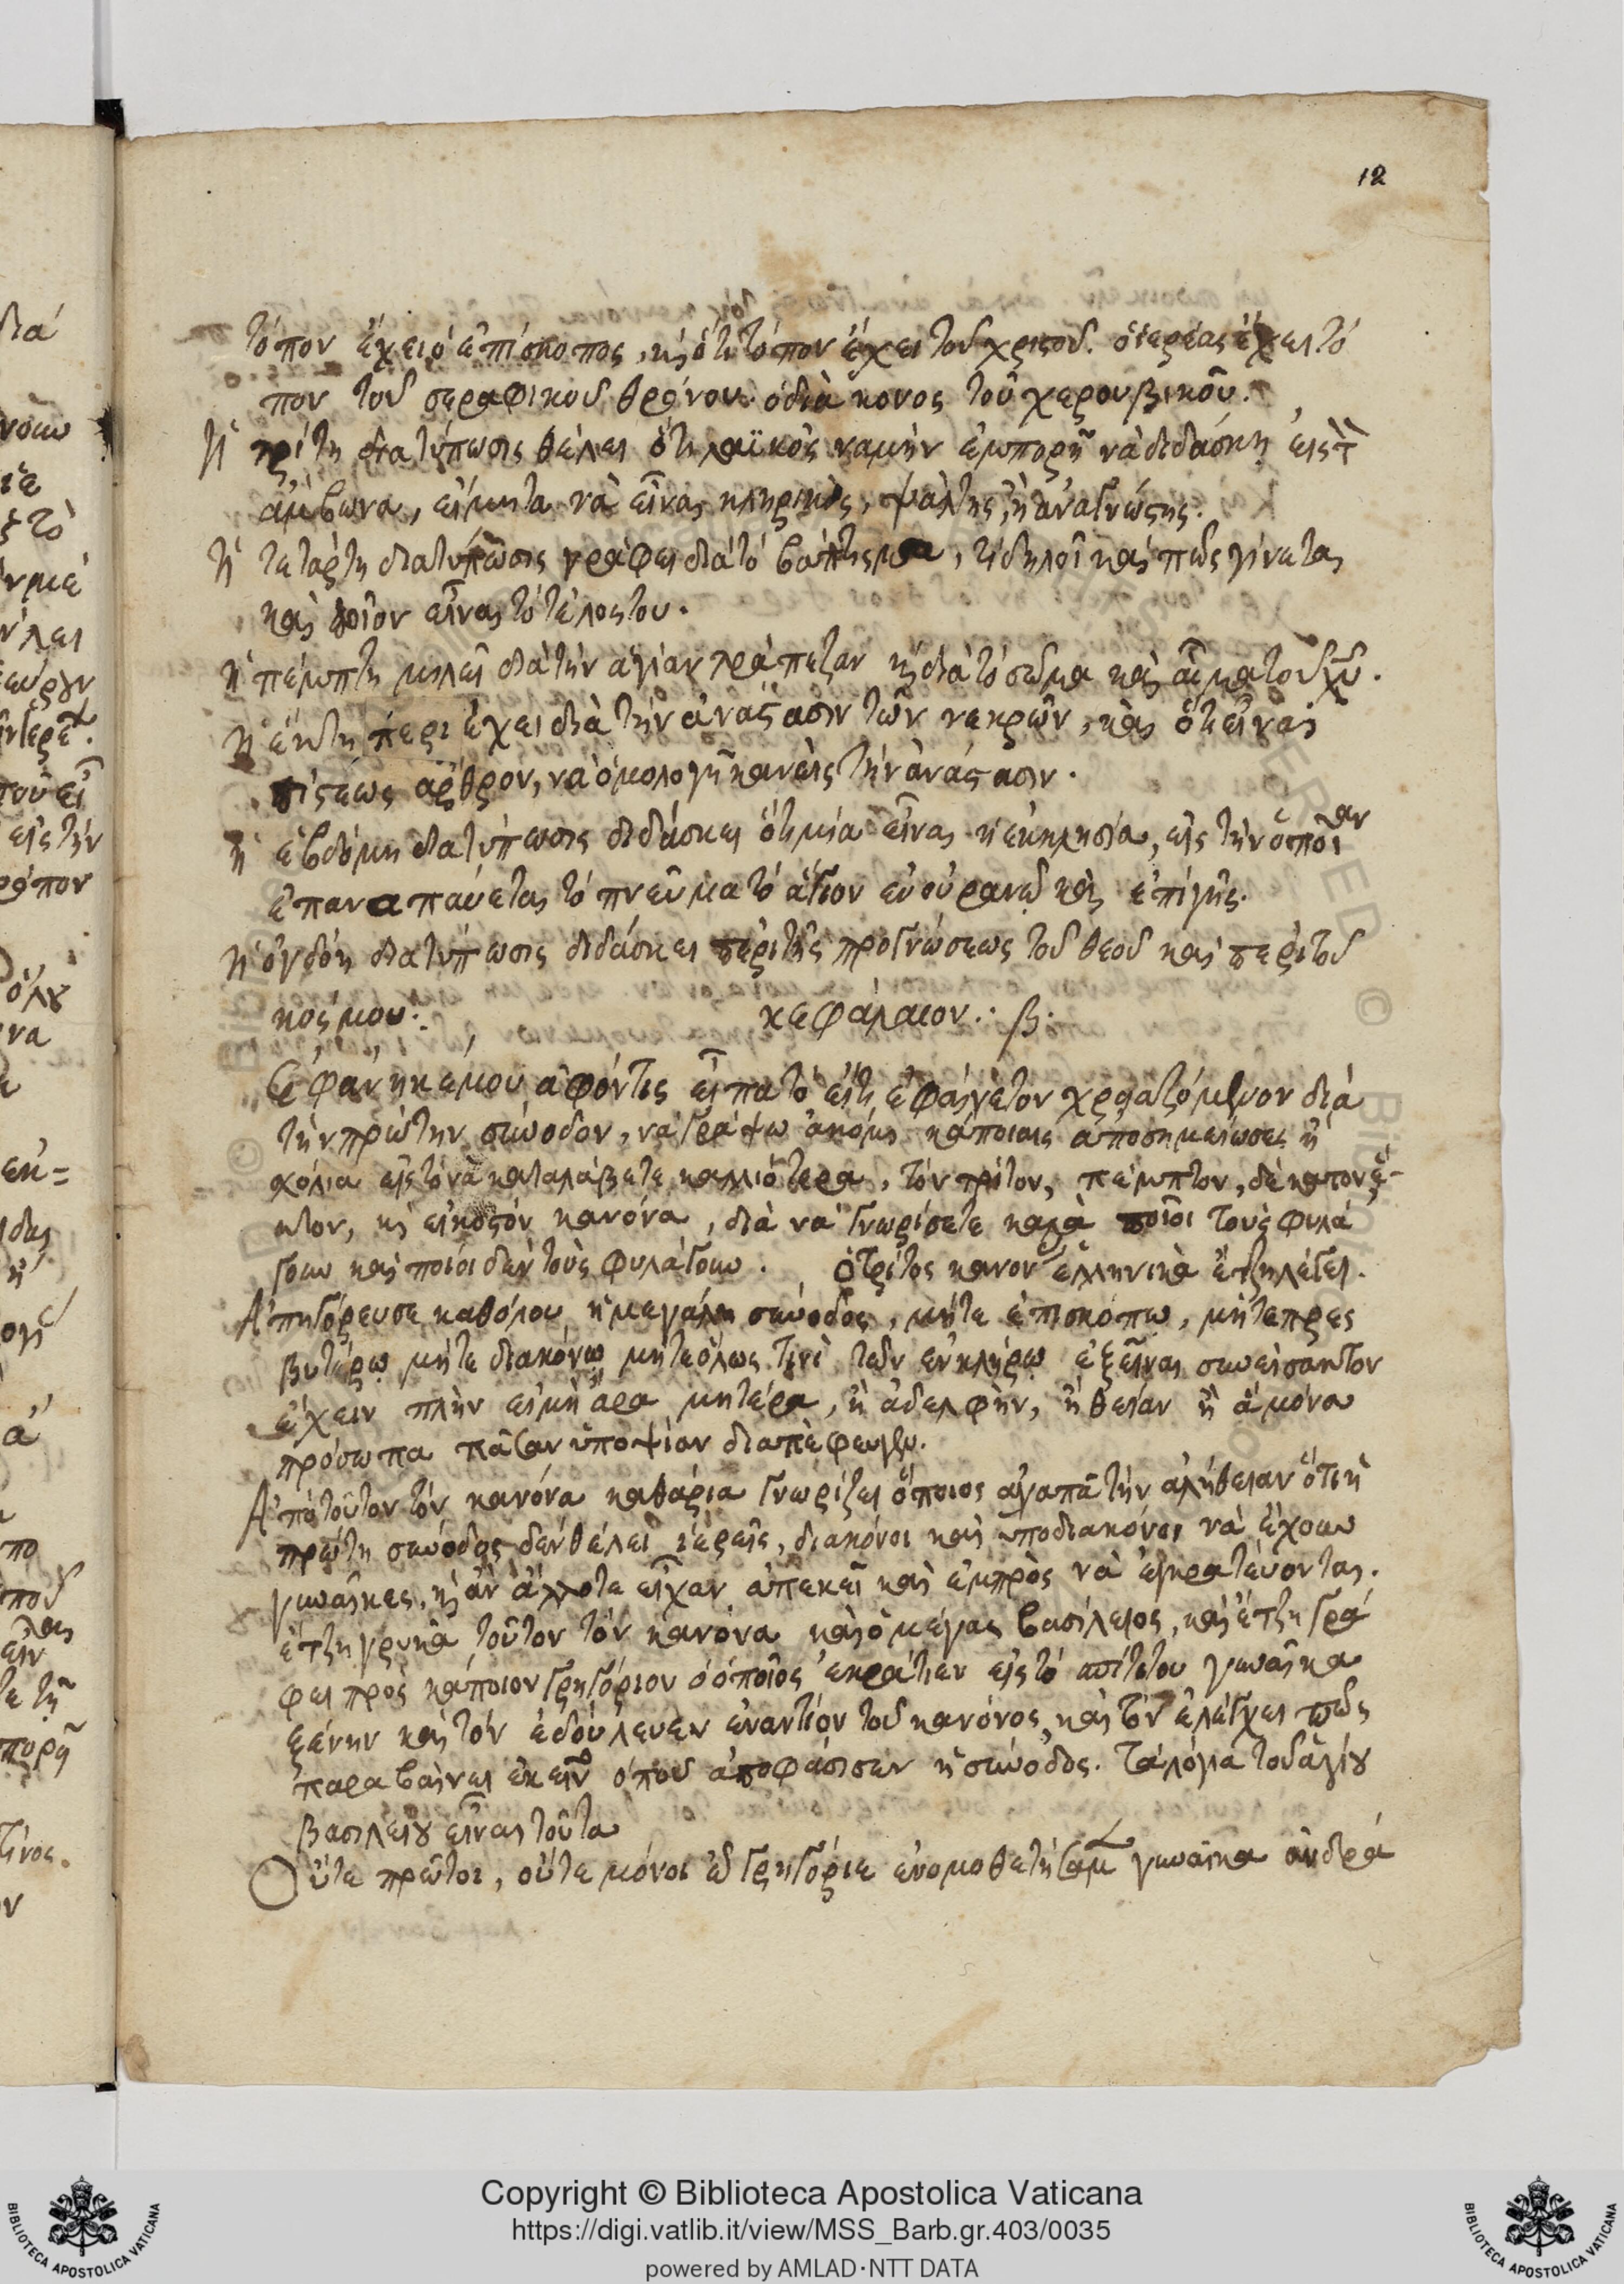 12
τόπον ἔχει ὁ ἐπίσκοπος, κὶ ὅτι τόπον ἔχει τοῦ χριστοῦ. ὁ ἱερέας ἔχει τό
πον τοῦ σεραφικοῦ θρόνου. ὁ διάκονος τοῦ χερουβικοῦ.
Ἡ τρίτη διατύπωσις θέλει ὅτι λαϊκὸς καμὴν ἐμπορῆ νὰ διδάσκη εἰς τ
ἄμβωνα, εἰμητα νὰ εἶναι κληρικὸς, ψάλτης, ἢ ἀναγνώστης.
Ἡ τετάρτη διατύπωσις γράφει διὰ τὸ βάπτισμα, τί δηλοῖ καὶ πῶς γίνεται
καὶ ποῖον εἶναι τὸ τέλος του.
Ἡ πέμπτη μιλεῖ διὰ τὴν ἁγίαν τράπεζαν κὶ διὰ τὸ σῶμα καὶ αἷμα τοῦ χυ.
Ἡ ἕκτη περιέχει διὰ τὴν ἀνάστασιν τῶν νεκρῶν, καὶ ὅτι εἶναι
πίστεως ἄρθρον, νὰ ὁμολογῆ κανεὶς τὴν ἀνάστασιν.
Ἡ ἑβδόμη διατύπωσις διδάσκει ὅτι μία εἶναι ἡ ἐκκλησία, εἰς τὴν ὁποίαν
ἐπαναπαύεται τὸ πνεῦμα τὸ ἅγιον ἐν οὐρανῷ καὶ ἐπὶ γῆς.
Ἡ ὀγδόη διατύπωσις διδάσκει περὶ τῆς προγνώσεως τοῦ θεοῦ καὶ περὶ τοῦ
κόσμου. κεφάλαιον. β.
Ἐφάνηκέ μου ἀφόντις εἶπα τὸ εἴτι ἐφαίνετον χρειαζόμενον διὰ
τὴν πρώτην σύνοδον, νὰ γράψω ἀκόμι κάποιαις ἀποσημείωσες ἢ
σχόλια εἰς τὸ νὰ καταλάβετε καλλιότερα, τὸν τρίτον, πέμπτον, δέκατον ἕ-
κτον, κὶ εἰκοστὸν κανόνα, διὰ νὰ γνωρίσετε καλὰ ποῖοι τοὺς φυλά
γουν καὶ ποιοὶ δὲν τοὺς φυλάγουν. ὁ τρίτος κανον ἑλληνικὰ ἔτζη λέγει.
Ἀπηγόρευσε καθόλου ἡ μεγάλη σύνοδος, μήτε ἐπισκόπω, μήτε πρες
βυτέρῳ μήτε διακόνῳ μήτε ὅλως τινὶ τῶν ἐν κλήρῳ ἐξεῖναι συνείσακτον
ἔχειν πλὴν εἰμὴ ἄρα μητέρα, ἢ ἀδελφὴν, ἢ θείαν ἢ ἃ μόνα
πρόσωπα πᾶσαν ὑποψίαν διαπέφευγεν.
Ἀπὸ τοῦτον τὸν κανόνα καθάρια γνωρίζει ὅποιος ἀγαπᾶ τὴν ἀλήθειαν ὅτι ἡ
πρώτη σύνοδος δὲν θέλει ἱερεῖς, διακόνοι καὶ ὑποδιακόνοι νὰ ἔχουν
γυναῖκες, κὶ ἂν ἄλλοτε εἶχαν ἀπεκεῖ καὶ ἐμπρὸς νὰ ἐγκρατεύονται.
ἔτζη γρικᾶ τοῦτον τὸν κανόνα καὶ ὁ μέγας βασίλειος, καὶ ἔτζη γρά
φει πρὸς κάποιον γρηγόριον ὁ ὁποῖος ἐκράτιεν εἰς τὸ σπίτι του γυναῖκα
ξένην καὶ τὸν ἐδούλευεν ἐναντίον τοῦ κανόνος, καὶ τὸν ἐλέγχει πῶς
παραβαίνει ἐκεῖνο ὁποῦ ἀποφάσισεν ἡ σύνοδος. τὰ λόγια τοῦ ἁγίου
βασιλείου εἶναι τοῦτα
Οὔτε πρῶτοι, οὔτε μόνοι ὦ γρηγόριε ἐνομοθετήσαμεν γυναῖκα ἀνδρά
Copyright © Biblioteca Apostolica Vaticana
https://digi.vatlib.it/view/MSS_Barb.gr.403/0035
powered by AMLAD·NTT DATA